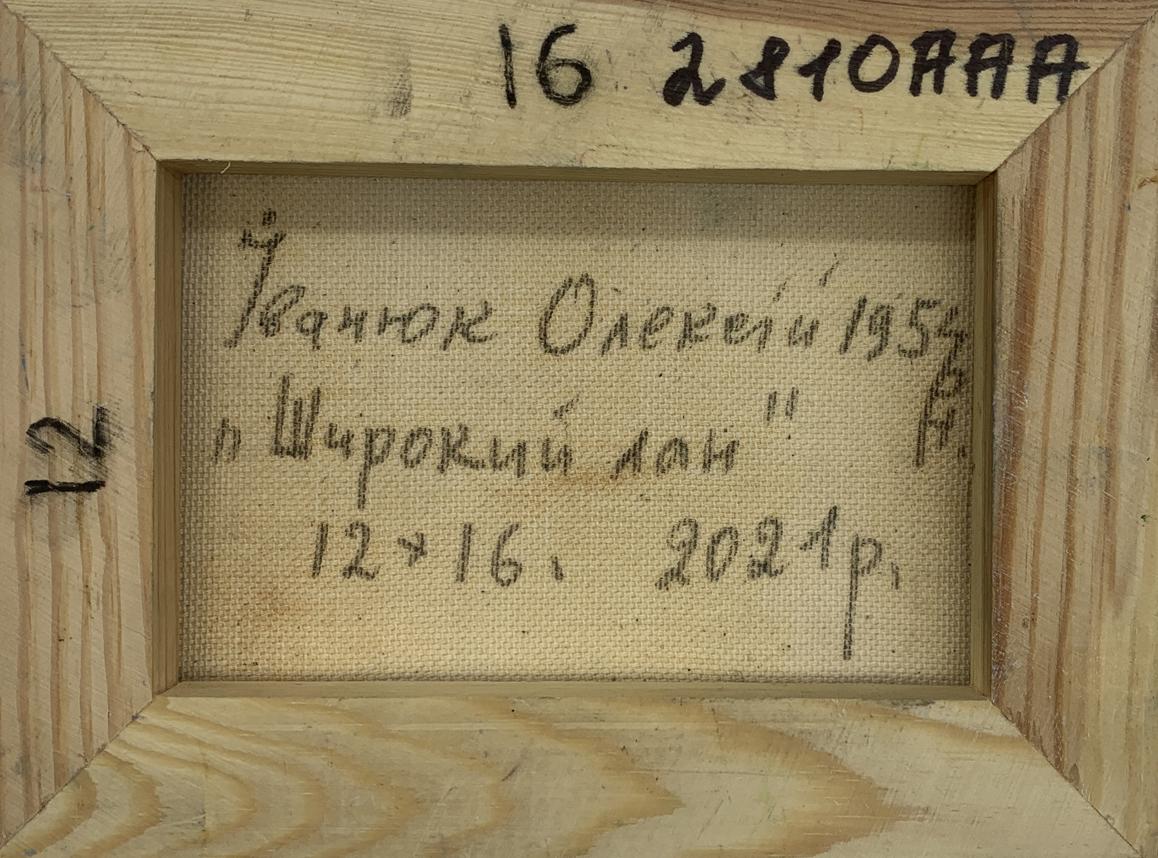 16 2810AAA
Іванюк Олексій 1954
р.
н.
„Широкий лан"
12
12×16. 2021р.